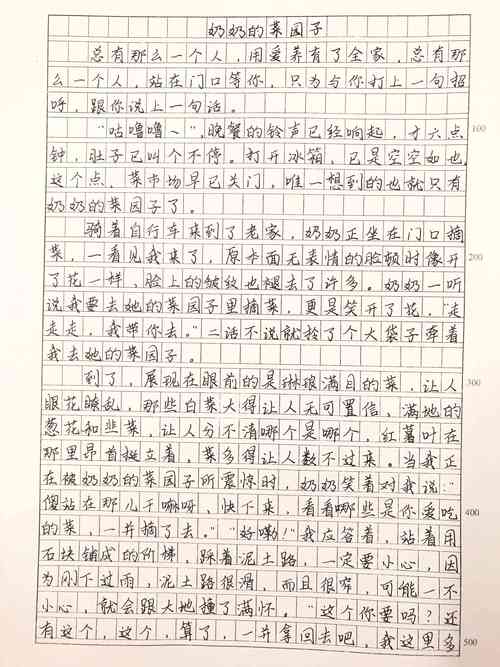 奶奶的菜园子
总有那么一个人，用爱养有了全家，总有那
么一个人，站在门口等你，只为与你打上一句招
呼，跟你说上一句话。
"咕噜噜~"，晚餐的铃声已经响起，才六点 100
钟，肚子已叫个不停。打开冰箱，已是空空如也，
这个点，菜市场早已关门，唯一想到的也就只有
奶奶的菜园子了。
骑着自行车来到了老家，奶奶正坐在门口摘
菜，一看见我来了，原本面无表情的脸顿时像开 200
了花一样、脸上的皱纹也褪去了许多。奶奶一听
说我要去她的菜园子里摘菜，更是笑开了花，"走
走走，我带你去。"二话不说就拎了个大袋子牵着
我去她的菜园子。
到了，展现在眼前的是琳琅满目的菜，让人 300
眼花瞭乱，那些白菜大得让人无可置信、满地的
葱花和韭菜，让人分不清哪个是哪个，红薯叶在
那里昂首挺立着，菜多得让人数不过来。当我正
在被奶奶的菜园子所震惊时，奶奶笑着对我说："
傻站在那儿干嘛呀、快下来，看看哪些是你爱吃 400
的菜，一并摘了去。""好嘞!"我应答着，站着用
石块铺成的阶梯，踩着泥土路，一定要小心，因
为刚下过雨，泥土路很滑，而且很窄，可能一不
小心，就会跟大地撞了满怀。"这个你要吗？还
有这个，这个，算了，一并拿回去吧，我这里多 500